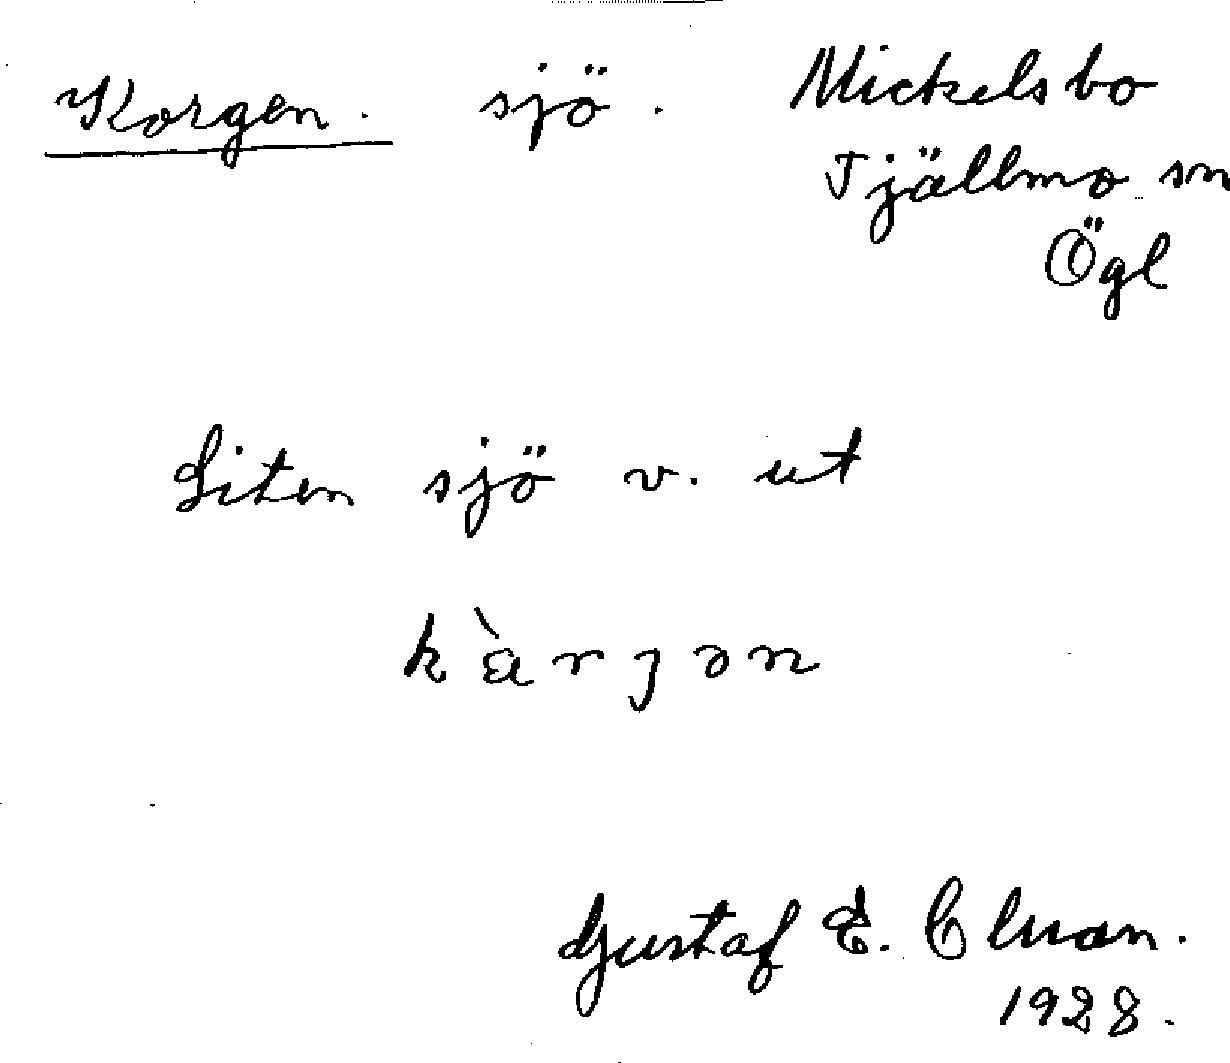 Korgen. sjö. Mickelsbo
Tjällmo sn
Ögl
Liten sjö v. ut
kàrjən
Gustaf E.
1928.